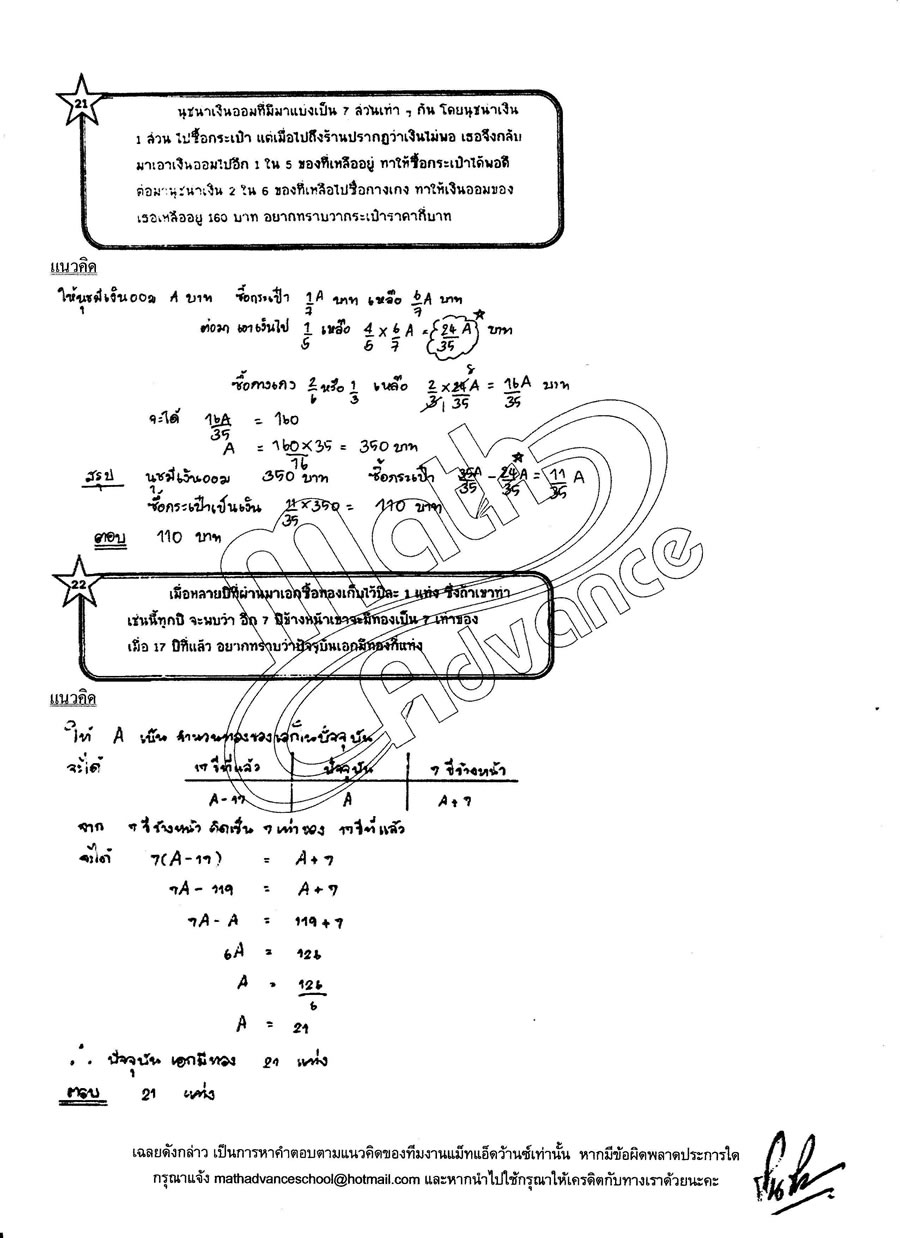 21
นุชนำเงินออมที่มีมาแบ่งเป็น 7 ส่วนเท่า ๆ กัน โดยนุชนำเงิน
1 ส่วน ไปซื้อกระเป๋า แต่เมื่อไปถึงร้านปรากฏว่าเงินไม่พอ เธอจึงกลับ
มาเอาเงินออมไปอีก 1 ใน 5 ของที่เหลืออยู่ ทำให้ซื้อกระเป๋าได้พอดี
ต่อมานุชนำเงิน 2 ใน 6 ของที่เหลือไปซื้อกางเกง ทำให้เงินออมของ
เธอเหลืออยู่ 160 บาท อยากทราบว่ากระเป๋าราคากี่บาท
แนวคิด
ให้นุชมีเงินออม A บาท ซื้อกระเป๋า 1/7 A บาท เหลือ 6/7 A บาท
ต่อมา เอาเงินไป 1/5 เหลือ 4/5 × 6/7 A = 24/35 A บาท
ซื้อกางเกง 2/6 หรือ 1/3 เหลือ 2/3 × 24/35 A = 16A/35 บาท
จะได้ 16A/35 = 160
A = 160×35/16 = 350 บาท
สรุป นุชมีเงินออม 350 บาท ซื้อกระเป๋า 35A/35 - 24/35 A = 11/35 A
ซื้อกระเป๋าเป็นเงิน 11/35 × 350 = 110 บาท
ตอบ 110 บาท
22
เมื่อหลายปีที่ผ่านมาเอกซื้อทองเก็บไว้ปีละ 1 แท่ง ซึ่งถ้าเขาทำ
เช่นนี้ทุกปี จะพบว่า อีก 7 ปีข้างหน้าเขาจะมีทองเป็น 7 เท่าของ
เมื่อ 17 ปีที่แล้ว อยากทราบว่าปัจจุบันเอกมีทองกี่แท่ง
แนวคิด
ให้ A เป็น จำนวนทองของเอกในปัจจุบัน
จะได้ 17 ปีที่แล้ว ปัจจุบัน 7 ปีข้างหน้า
A-17 A A+7
จาก 7 ปีข้างหน้า คิดเป็น 7 เท่าของ 17 ปีที่แล้ว
จะได้ 7(A-17) = A+7
7A-119 = A+7
7A-A = 119+7
6A = 126
A = 126/6
A = 21
∴ ปัจจุบัน เอกมีทอง 21 แท่ง
ตอบ 21 แท่ง
Math
Advance
เฉลยดังกล่าว เป็นการหาคำตอบตามแนวคิดของทีมงานแม็ทแอ็ดว้านซ์เท่านั้น หากมีข้อผิดพลาดประการใด
กรุณาแจ้ง mathadvanceschool@hotmail.com และหากนำไปใช้กรุณาให้เครดิตกับทางเราด้วยนะคะ